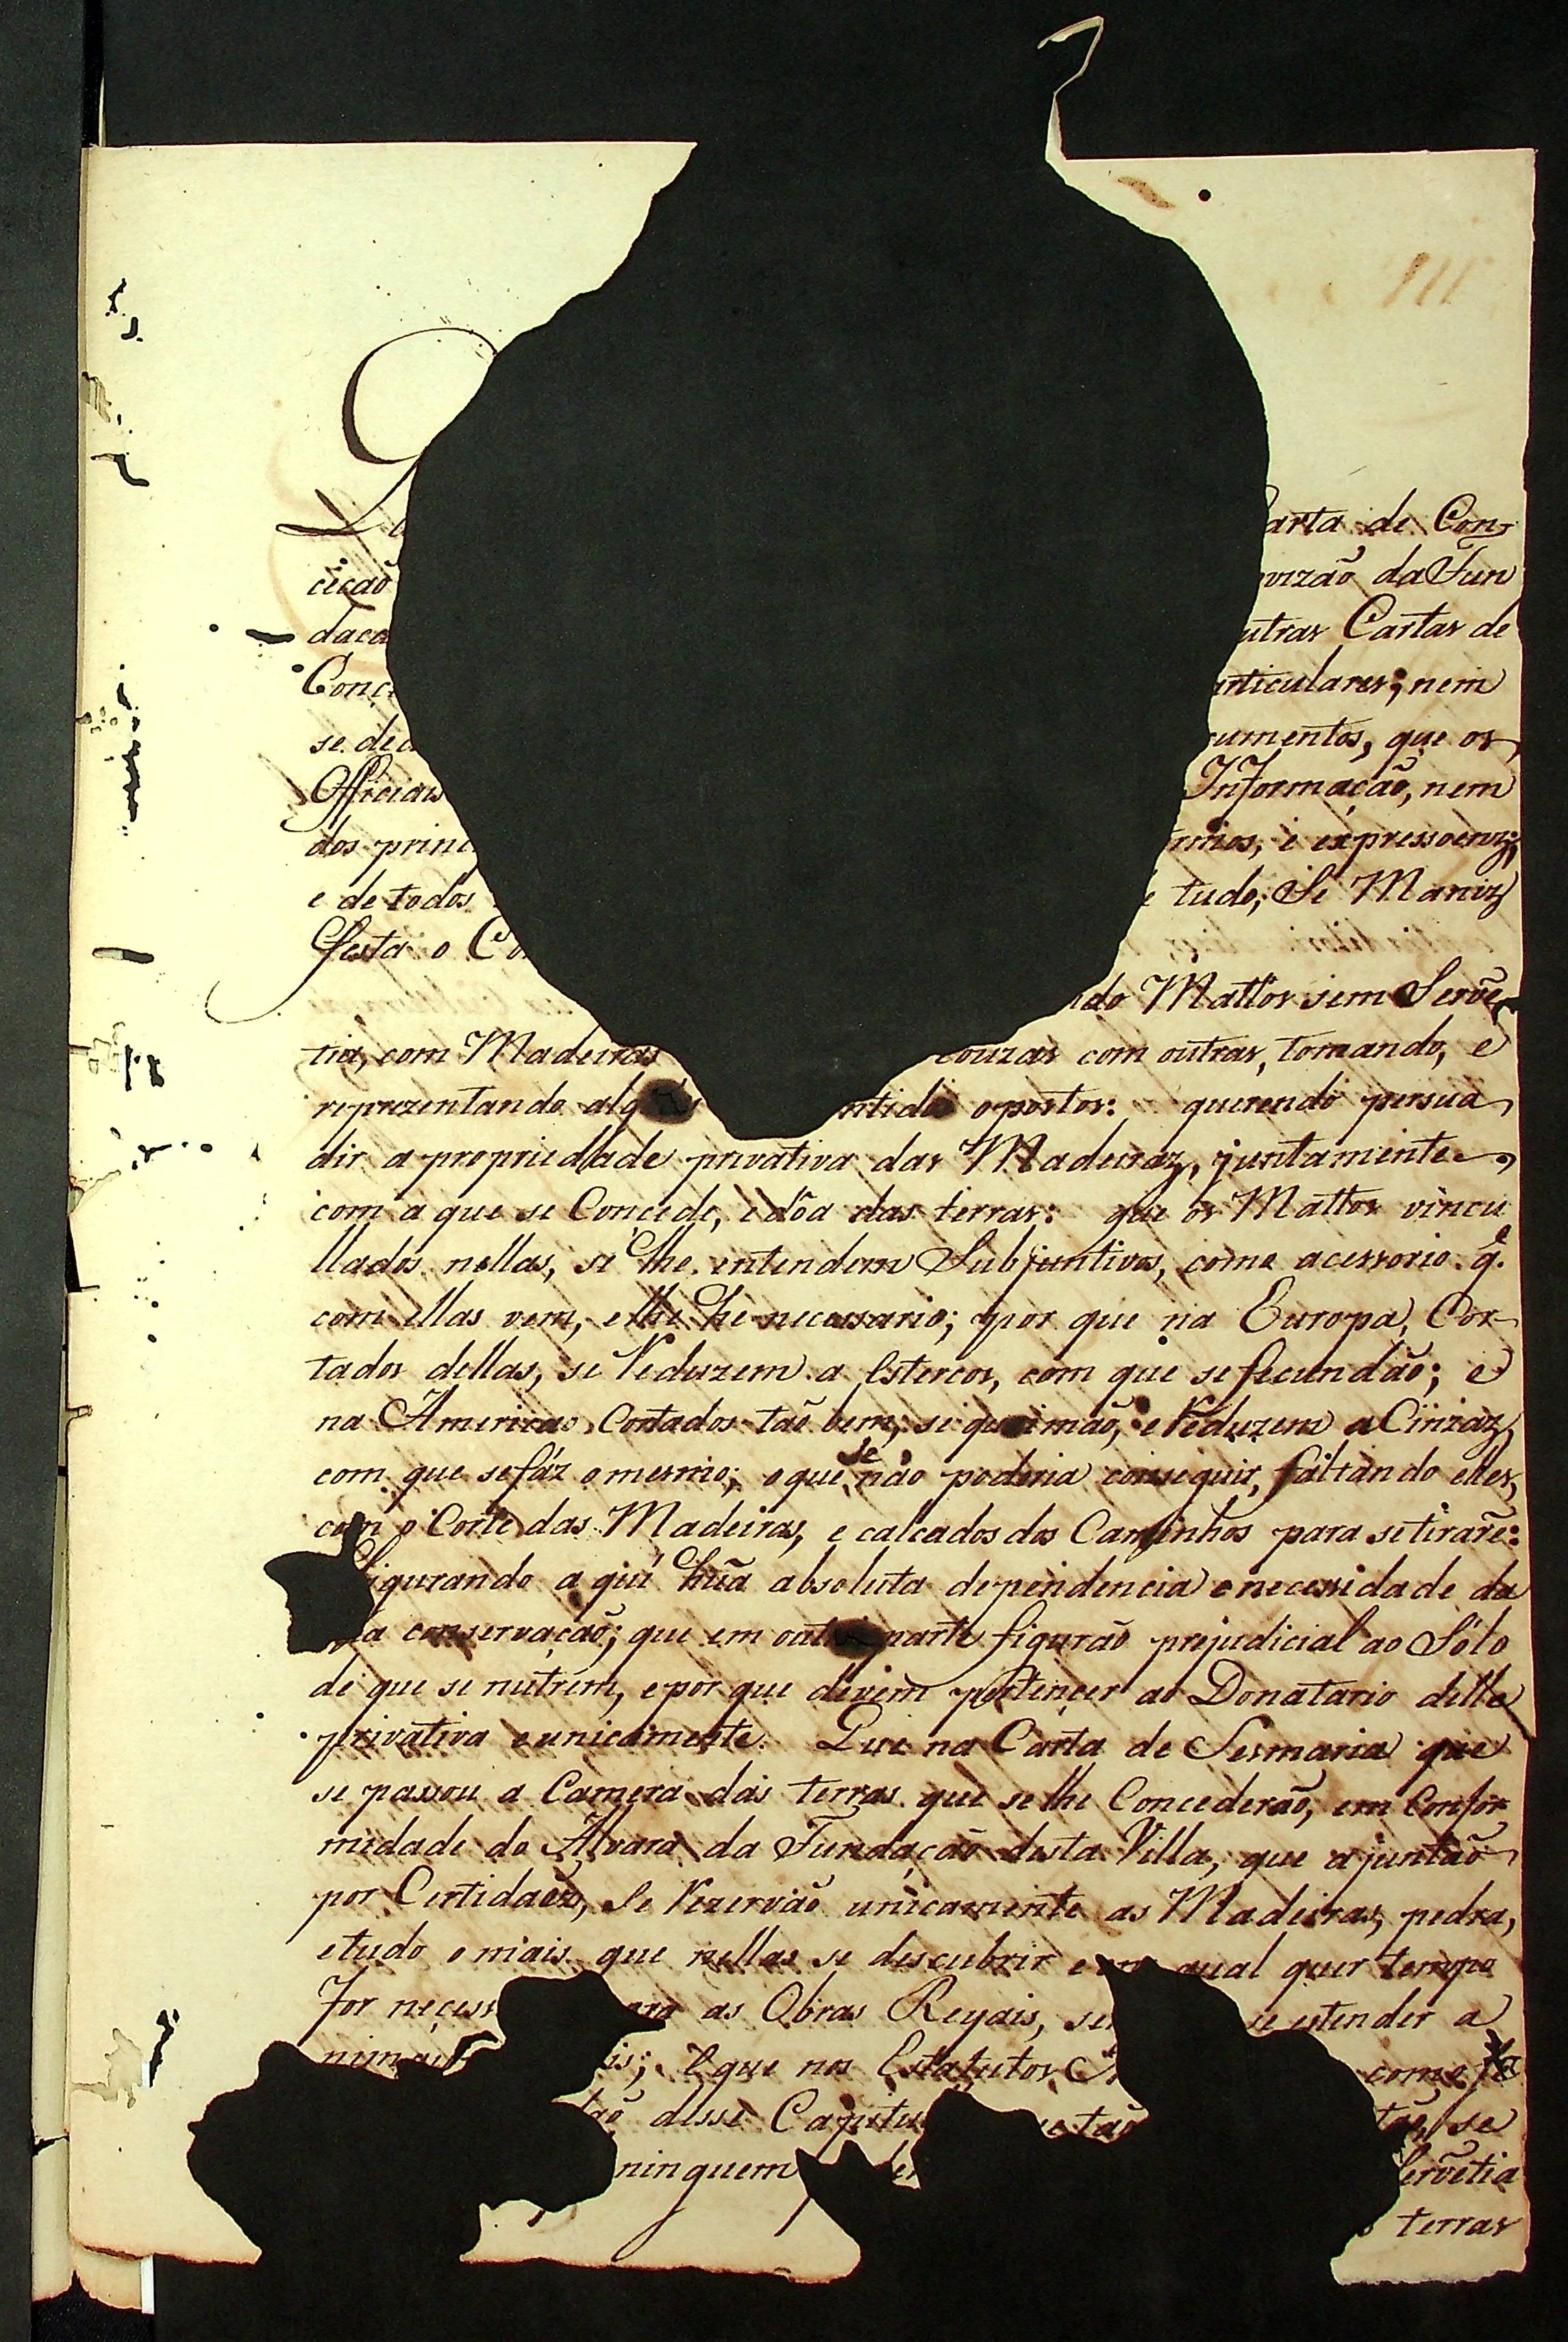 111
arta de Con-
cecaõ vizaõ da Fun
daca utras Cartas de
Conc articulares; nem
se de cumentos, que os
Officiais Informaçaõ, nem
dos princ rmos, e expressoens;
e de todos e tudo; Se Mani
festa o Co
do Mattos sem Servẽ
tia, com Madeiras couzas com outras, tomando, e
reprezentando alg ntidos opostos: querendo persua
dir a propriedade privativa das Madeiraz, juntamente
com a que se Concede, e dôa das terras: que os Mattos vincu
llados nellas, se lhe entendem Subjuntivos, come acessorio q.e
com ellas vem, e lhe he necessario; por que na Europa, Cor-
tados dellas, se Reduzem a Estercos, com que se fecundaõ; e
na America Cortados taõ bem, se queimaõ, e Reduzem a Cinzaz,
com que se fáz o mesmo; o que se naõ poderia conseguir, faltando elles,
com o Corte das Madeiras, e calcados dos Caminhos para se tirarẽ:
figurando aqui huã absoluta dependencia e necessidade da
a conservaçaõ; que em outra parte figuraõ prejudicial ao Sólo
de que se nutrem, e por que devem pertencer ao Donatario delle
privativa e unicamente. Que na Carta de Sesmaria que
se passou a Camera das terras que se lhe Concederaõ, em Confor
midade do Alvara da Fundaçaõ desta Villa, que ajuntaõ
por Certidaõ, Se Rezervaõ unicamente as Madeiras, pedra,
e tudo o mais que nellas se descubrir e em qual quer tempo
for necess ara as Obras Reyais, se estender a
is; E que nos Estatutos come
taõ desse Capitu taõ, se
ninguem Servẽtia
terras